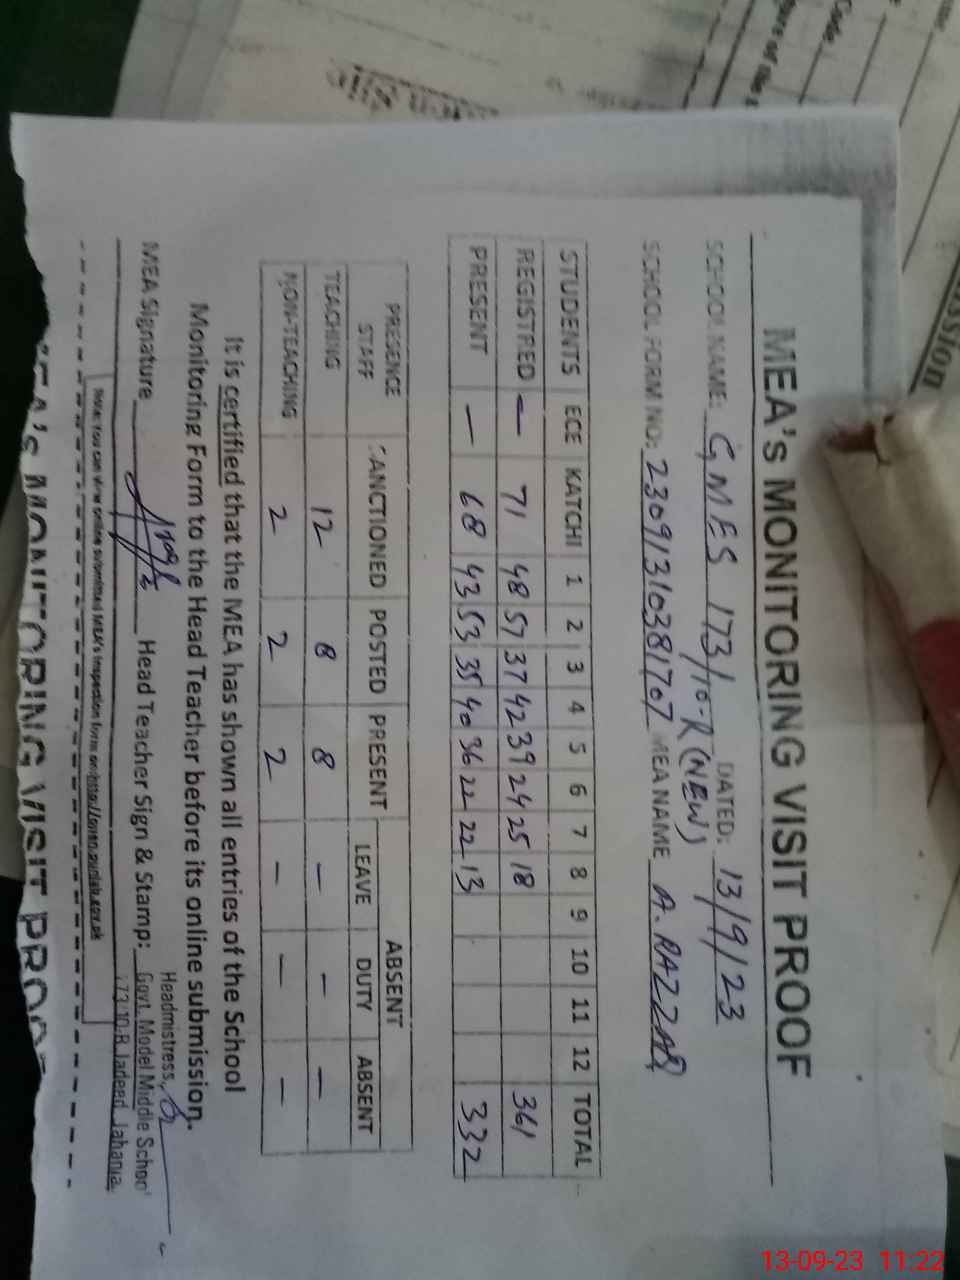 MEA's MONITORING VISIT PROOF
SCHOOL NAME: GMES 173/10-R (NEW) DATED: 13/9/23
SCHOOL FORM NO: 23091310381707 MEA NAME A. RAZZAQ
STUDENTS ECE KATCHI 1 2 3 4 5 6 7 8 9 10 11 12 TOTAL
REGISTRED — 71 48 57 37 42 39 24 25 18 361
PRESENT — 68 43 53 35 40 36 22 22 13 332
PRESENCE STAFF SANCTIONED POSTED PRESENT ABSENT
LEAVE DUTY ABSENT
TEACHING 12 8 8 — — —
NON-TEACHING 2 2 2 — — —
It is certified that the MEA has shown all entries of the School
Monitoring Form to the Head Teacher before its online submission.
MEA Signature Head Teacher Sign & Stamp:
Headmistress,
Govt. Model Middle School
173.10.R Jadeed Jahania.
Note: You can view online submitted MEA's inspection form on: http://open.punjab.gov.pk
MEA's MONITORING VISIT PROOF
13-09-23 11:22